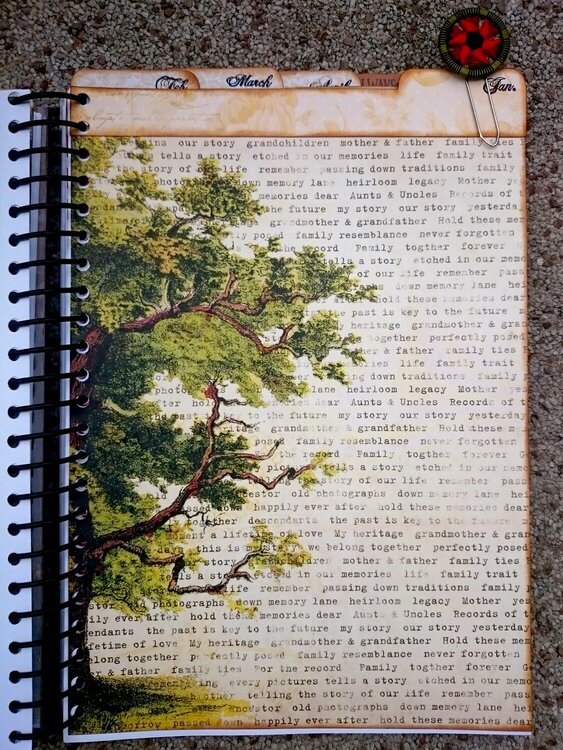 Feb. March April ALWAYS Jan.
ins our story grandchildren mother & father family ties
tells a story etched in our memories life family trait
the story of our life remember passing down traditions family
photo down memory lane heirloom legacy Mother
memories dear Aunts & Uncles Records of t
the future my story our story yesterda
grandmother & grandfather Hold these mem
posed family resemblance never forgotten
record Family togther forever
tells a story etched in our memo
of our life remember pass
down memory lane hei
hold these memories dear
past is key to the future m
heritage grandmother & gran
together perfectly posed
& father family ties
ies life family trait
ing down traditions family
photo lane heirloom legacy Mother yes
ter hol memories dear Aunts & Uncles Records of t
past key to the future my story our story yesterday
eritage grandmother & grandfather Hold these mem
posed family resemblance never forgotten
the record Family togther forever
pictu a story etched in our memo
story of our life remember pass
ancestor old photographs down memory lane hei
passed down happily ever after hold these memories dear
together descendants the past is key to the future
a lifetime of love My heritage grandmother & gran
days this is my st we belong together perfectly posed
story grandchildren mother & father family ties
ls a story in our memories life family trait
life remember passing down traditions family
photographs down memory lane heirloom legacy Mother yes
ily ever after hold these memories dear Aunts & Uncles Records of t
endants the past is key to the future my story our story yesterday
fetime of love My heritage grandmother & grandfather Hold these mem
elong together perfectly posed family resemblance never forgotten
r & father family ties For the record Family togther forever
every pictures tells a story etched in our memo
ther telling the story of our life remember pass
ancestor old photographs down memory lane hei
morrow passed down happily ever after hold these memories dear